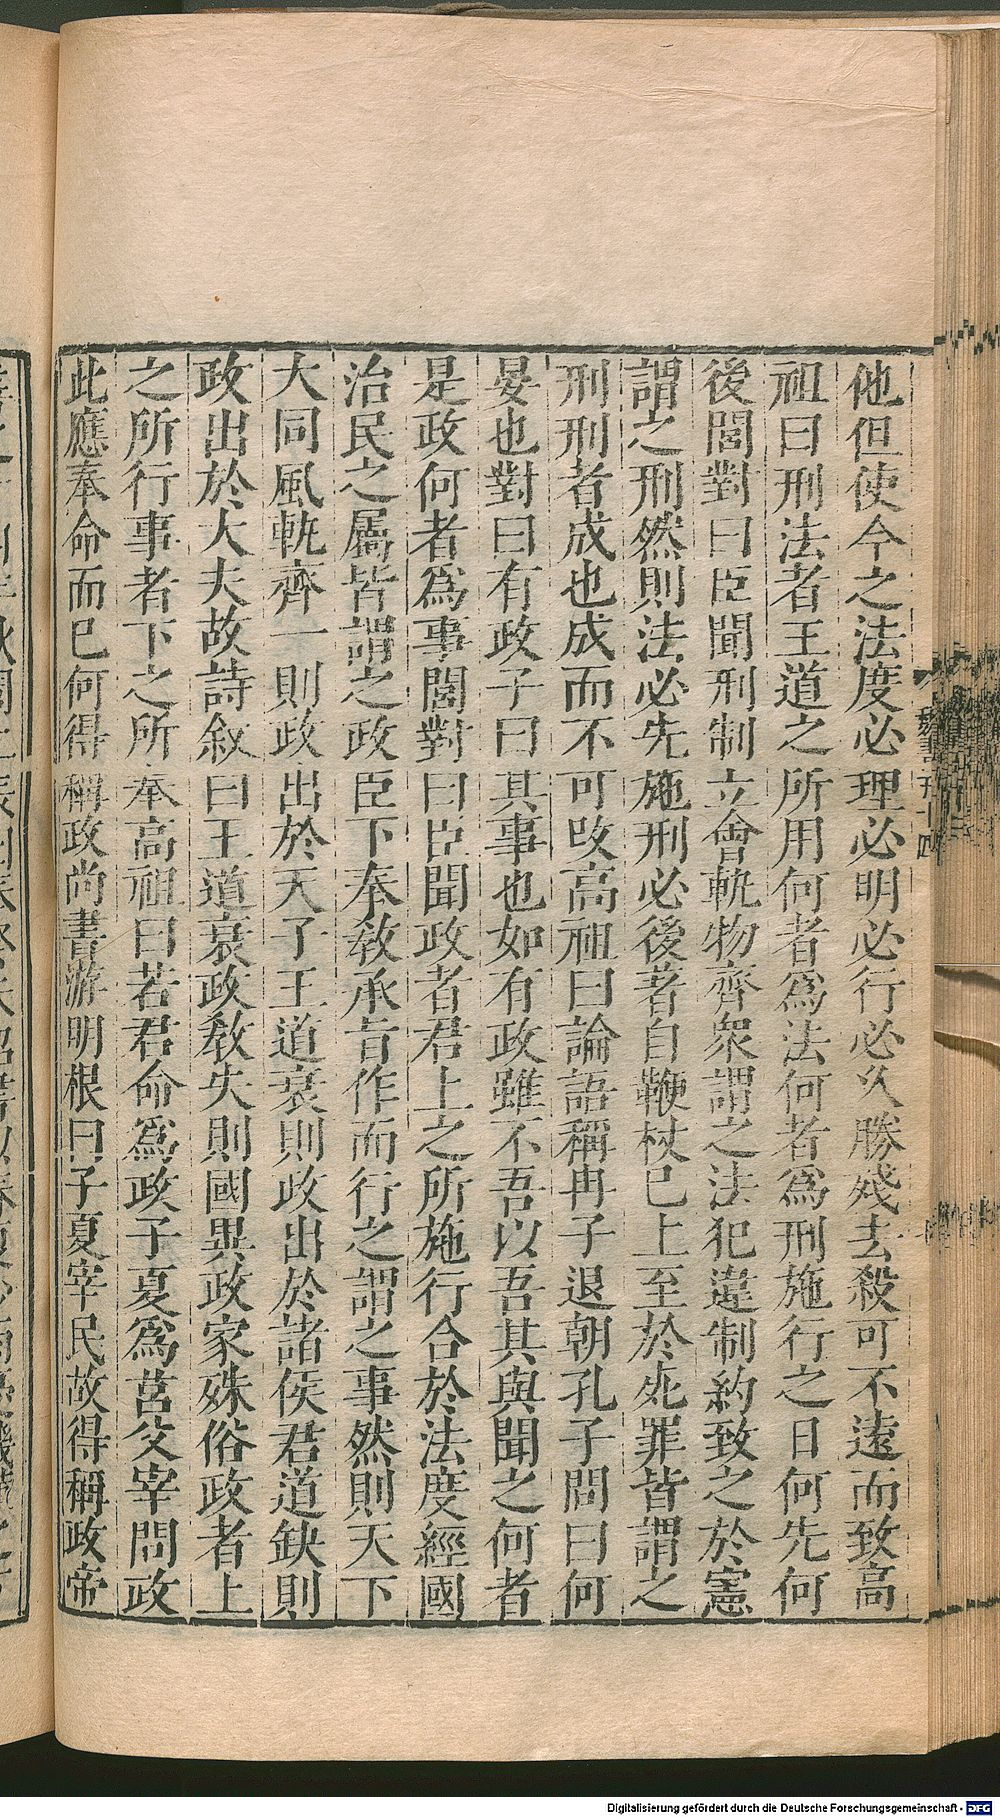 他但使今之法度必理必明必行必久勝殘去殺可不遠而致高
祖曰刑法者王道之所用何者爲法何者爲刑施行之日何先何
後閭對曰臣聞刑制立會軌物齊衆謂之法犯違制約致之於憲
謂之刑然則法必先施刑必後著自鞭杖已上至於死罪皆謂之
刑刑者成也成而不可改高祖曰論語稱冉子退朝孔子問曰何
晏也對曰有政子曰其事也如有政雖不吾以吾其與聞之何者
是政何者爲事閭對曰臣聞政者君上之所施行合於法度經國
治民之屬皆謂之政臣下奉教承旨作而行之謂之事然則天下
大同風軌齊一則政出於天子王道衰則政出於諸侯君道缺則
政出於大夫故詩敘曰王道衰政教失則國異政家殊俗政者上
之所行事者下之所奉高祖曰若君命爲政子夏爲莒父宰問政
此應奉命而已何得稱政尚書游明根曰子夏宰民故得稱政帝
Digitalisierung gefördert durch die Deutsche Forschungsgemeinschaft - DFG